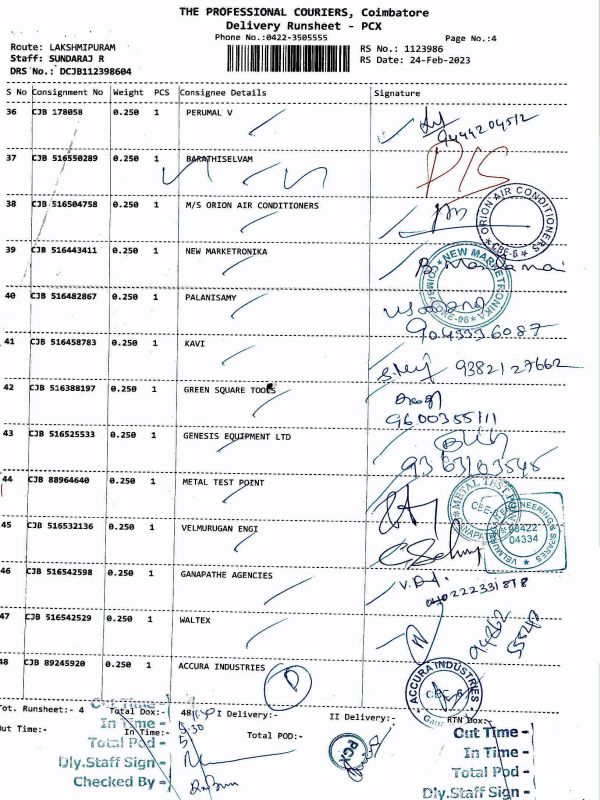 THE PROFESSIONAL COURIERS, Coimbatore
Delivery Runsheet - PCX
Phone No.:0422-3505555
Page No.:4
Route: LAKSHMIPURAM
RS No.: 1123986
Staff: SUNDARAJ R
RS Date: 24-Feb-2023
DRS No.: DCJB112398604
S No Consignment No Weight PCS Consignee Details Signature
36 CJB 178058 0.250 1 PERUMAL V
9444204512
37 CJB 516550289 0.250 1 BARATHISELVAM
P/S
38 CJB 516504758 0.250 1 M/S ORION AIR CONDITIONERS
ORION AIR CONDITIONERS
CBE-6
39 CJB 516443411 0.250 1 NEW MARKETRONIKA
NEW MARKETRONIKA
40 CJB 516482867 0.250 1 PALANISAMY
9043336087
41 CJB 516458783 0.250 1 KAVI
9382127662
42 CJB 516388197 0.250 1 GREEN SQUARE TOOLS
9600355111
43 CJB 516525533 0.250 1 GENESIS EQUIPMENT LTD
9363103545
44 CJB 88964640 0.250 1 METAL TEST POINT
METAL TEST
CBE-
45 CJB 516532136 0.250 1 VELMURUGAN ENGI
ENGINEERING & SPARES
98422
04334
46 CJB 516542598 0.250 1 GANAPATHE AGENCIES
47 CJB 516542529 0.250 1 WALTEX
48 CJB 89245920 0.250 1 ACCURA INDUSTRIES
P
ACCURA INDUSTRIES
CBE-6
Tot. Runsheet:- 4 Total Dox:- 48 I Delivery:- II Delivery:- RTN Dox:-
Out Time:- In Time:- Total POD:-
Out Time -
In Time -
Total Pod -
Dly.Staff Sign -
Checked By -
PCX
Out Time -
In Time -
Total Pod -
Dly.Staff Sign -